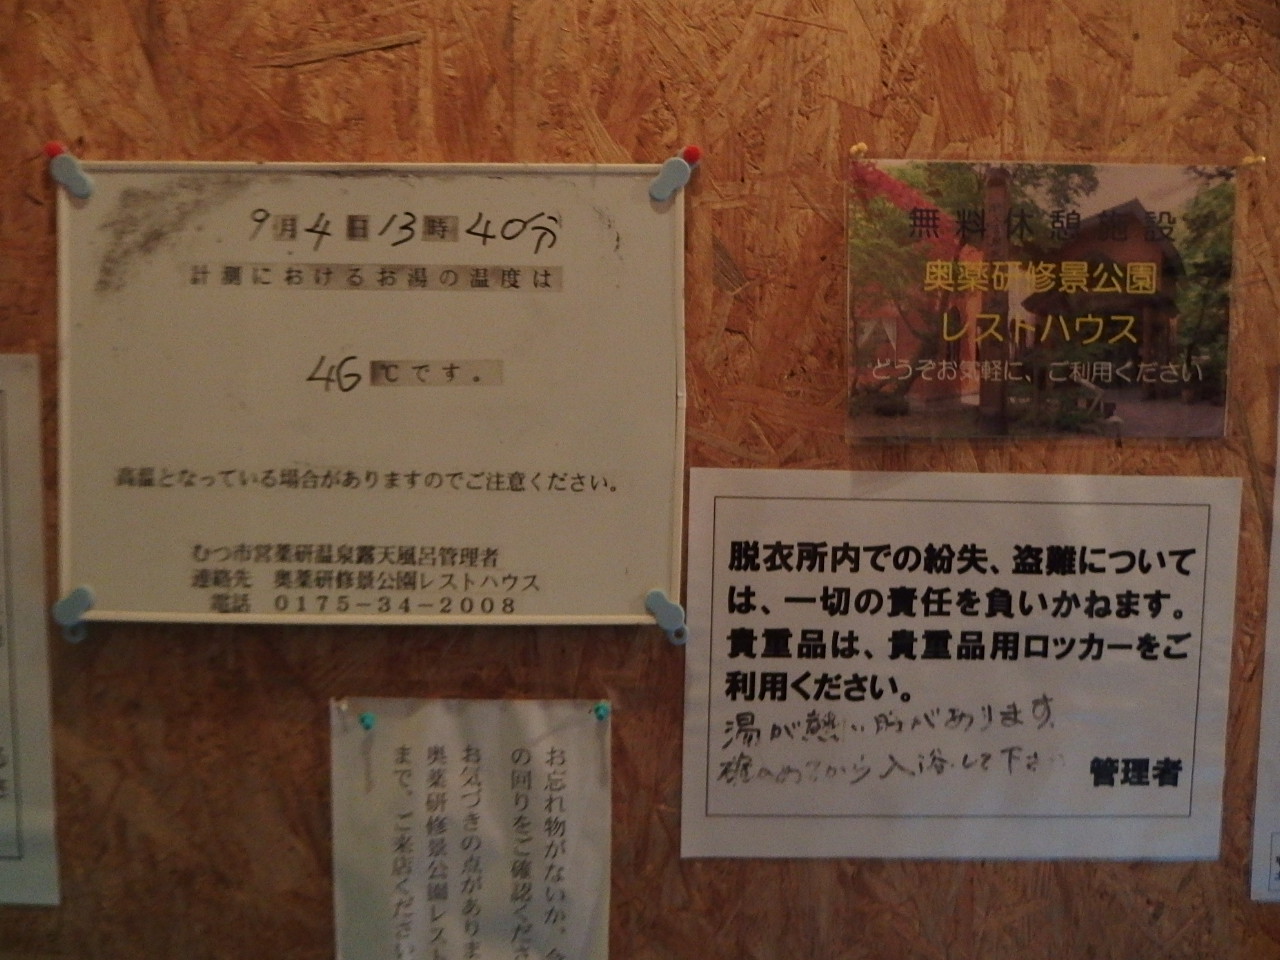 9月4日13時40分
計測におけるお湯の温度は
46℃です。
高温となっている場合がありますのでご注意ください。
むつ市営薬研温泉露天風呂管理者
連絡先 奥薬研修景公園レストハウス
電話 0175-34-2008
無料休憩施設
奥薬研修景公園
レストハウス
どうぞお気軽に、ご利用ください
脱衣所内での紛失、盗難について
は、一切の責任を負いかねます。
貴重品は、貴重品用ロッカーをご
利用ください。
湯が熱い時があります
確かめてから入浴して下さ
管理者
お忘れ物がないか、
の回りをご確認くださ
お気づきの点がありま
奥薬研修景公園レスト
まで、ご来店ください